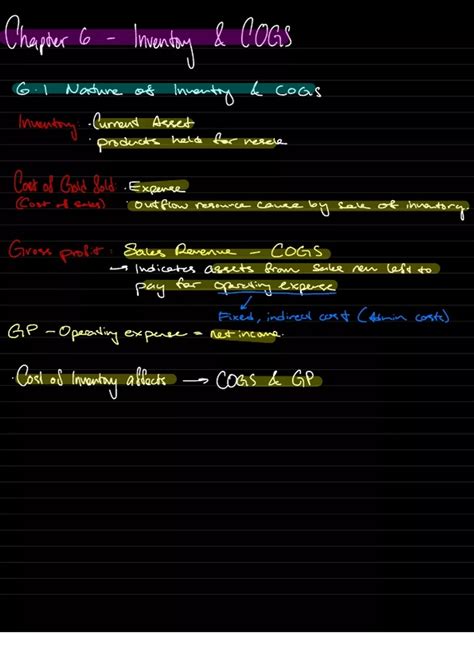 Chapter 6 - Inventory & COGS
6.1 Nature of Inventory & COGS
Inventory: · Current Asset
· products held for resale
Cost of Gold Sold · Expense
(Cost of sales) · Outflow resource cause by sale of inventory
Gross profit: Sales Revenue - COGS
→ Indicates assets from sales rev left to
pay for operating expense
Fixed, indirect cost (Admin costs)
GP - Operating expense = net income.
· Cost of Inventory affects → COGS & GP